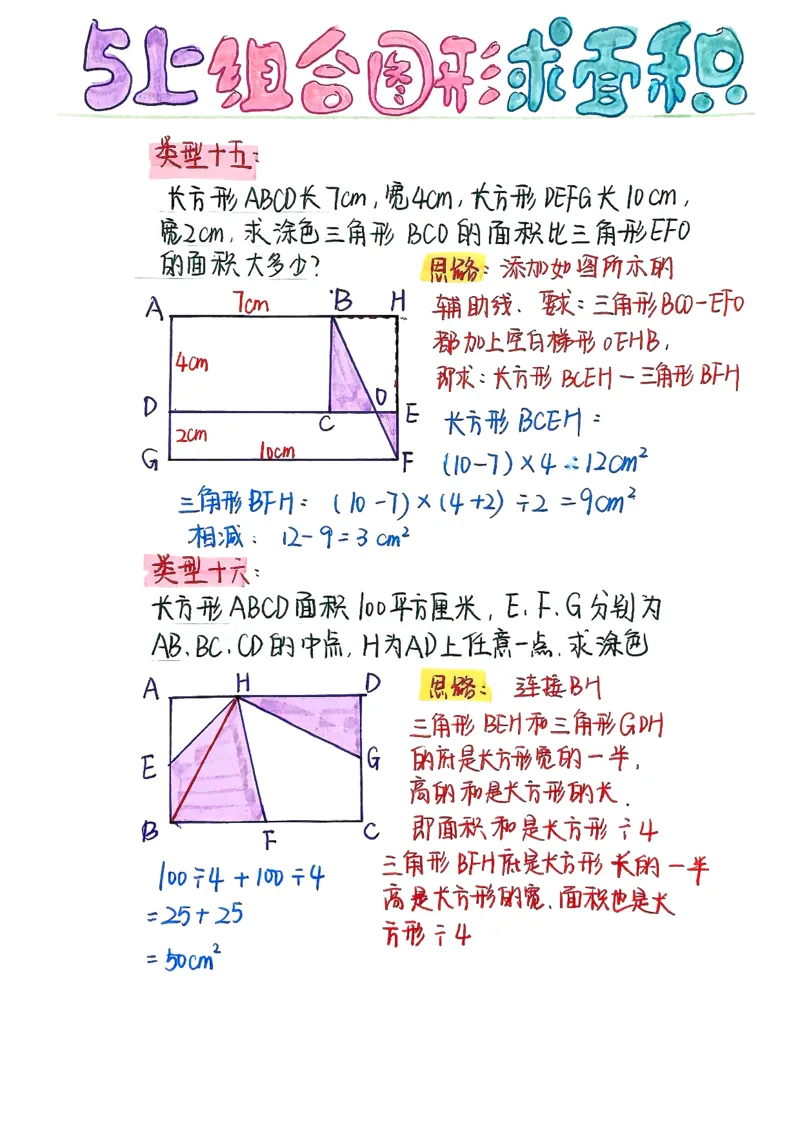 5上组合图形求面积
类型十五:
长方形ABCD长7cm,宽4cm,长方形DEFG长10cm,
宽2cm,求涂色三角形 BCO的面积比三角形EFO
的面积大多少?
思路:添加如图所示的
辅助线、要求:三角形BCO-EFO
都加上空白梯形OEHB,
即求:长方形BCEH-三角形BFH
A 7cm B H
4cm
D C O E
2cm
G 10cm F
长方形BCEH=
(10-7)×4=12cm²
三角形BFH: (10-7)×(4+2)÷2=9cm²
相减: 12-9=3cm²
类型十六:
长方形ABCD面积100平方厘米,E、F、G分别为
AB、BC、CD的中点,H为AD上任意一点.求涂色
A H D
E G
B F C
思路: 连接BH
三角形BEH和三角形GDH
的底是长方形宽的一半,
高的和是长方形的长.
即面积和是长方形÷4
三角形BFH底是长方形长的一半
高是长方形的宽、面积也是长
方形÷4
100÷4+100÷4
=25+25
=50cm²